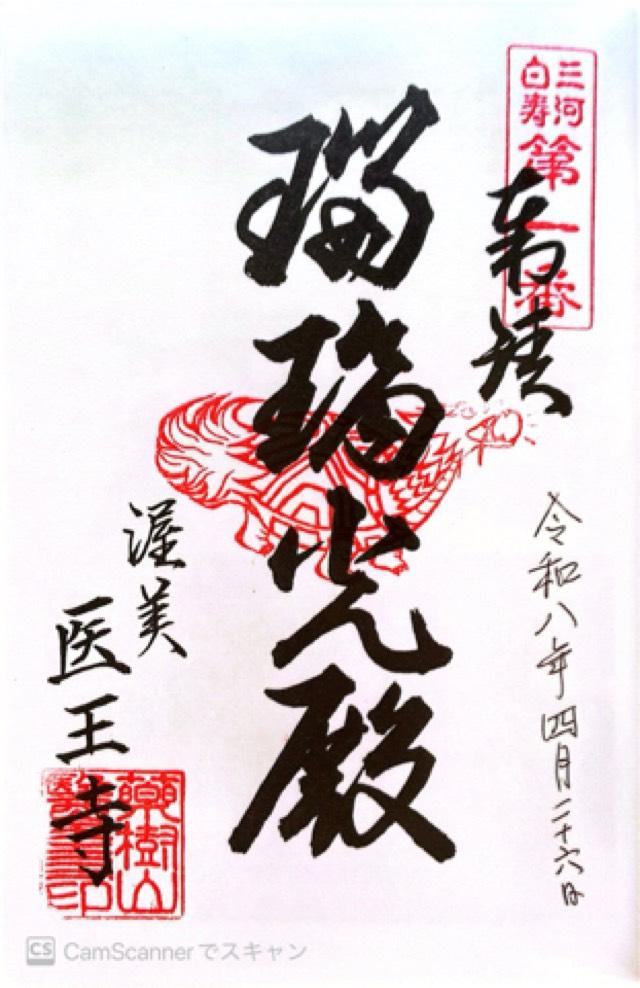 三河
白寿
第一番
奉拝
令和八年四月二十六日
瑠璃光殿
渥美
医王寺
CS CamScannerでスキャン